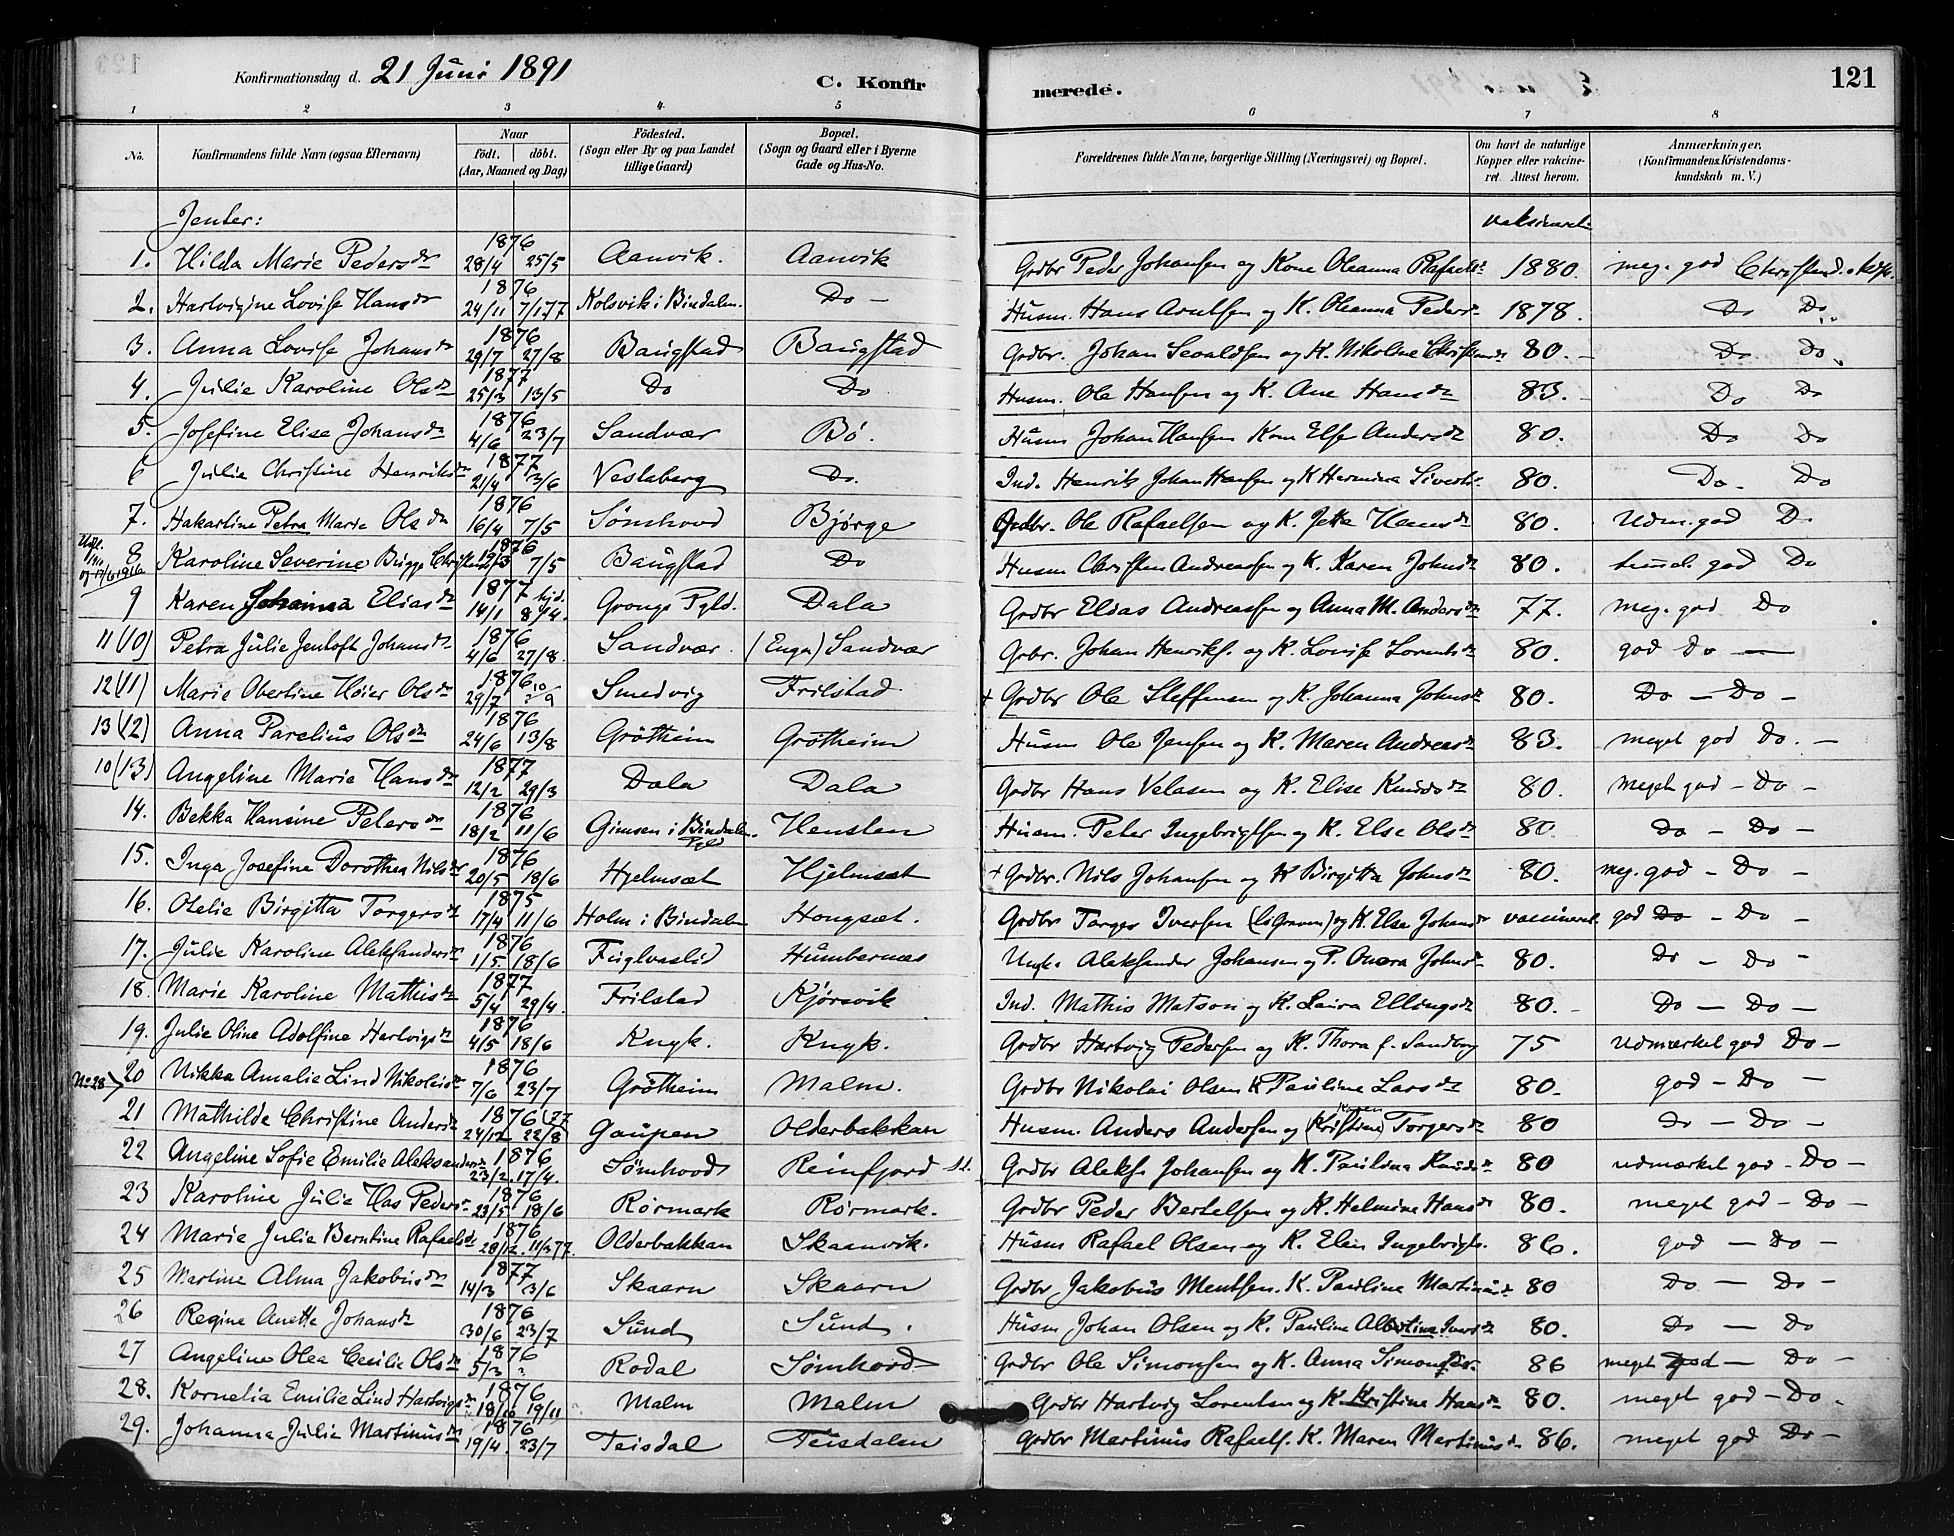 Konfirmationsdag d. 21 Juni 1891
C. Konfir merede.
121
1 2 3 4 5 6 7 8
No. Konfirmandens fulde Navn (ogsaa Efternavn) Naar født. døbt. (Aar, Maaned og Dag) Fødested. (Sogn eller By og paa Landet tillige Gaard) Bopæl. (Sogn og Gaard eller i Byerne Gade og Hus-No. Forældrenes fulde Navne, borgerlige Stilling (Næringsvei) og Bopæl. Om havt de naturlige Kopper eller vakcineret. Attest herom. Anmærkninger. (Konfirmandens Kristendomskundskab m. V.)
Jenter:
1. Hilda Marie Pedersdr 1876 28/4 25/5 Aanvik. Aanvik Grdbr Peder Johansen og Kone Oleanna Rafaelsdr 1880. meg. god
2. Hartvigine Lovise Hansdr 1876 24/11 7/1 77 Kolsvik i Bindalen. Do - Husm. Hans Arntsen og K. Oleanna Pedersdr 1878. Do Do
3. Anna Lovise Johansdr 1876 29/7 27/8 Baugstad Baugstad Grdbr. Johan Sevaldsen og K. Nikoline 80. - Do Do
4. Julie Karoline Olsdr 1877 25/3 13/5 Do Do Husm. Ole Hansen og K. Ane Hansdr 83. - Do Do
5. Josefine Elise Johansdr 1876 4/6 23/7 Sandvær Bø. Husm Johan Hansen Kone Else Andersdr 80. Do Do
6 Julie Christine Henriksdr 1877 21/4 3/6 Veslaberg Do. Ind. Henrik Johan Hansen og K 80. Do. Do
7. Hakartine Petra Marie Olsdr 1876 16/4 7/5 Sømhovd Bjørge Grdbr. Ole Rafaelsen og K. Jetta Hansdr 80. Udm. god D.
8 Karoline Severine Bugge 1876 7/5 Baugstad Do Husm Christen Andreassen og K. Karen Johnsdr 80. god Do
9 Karen Johanna Eliasdr 1877 14/1 8/4. Grongs Pgld. Dala Grdbr Elias Andreassen og Anna M. Andersdr 77. meg. god Do
11 (10) Petra Julie Jentoft Johansdr 1876 4/6 27/8. Sandvær. (Enga) Sandvær Grbr. Johan Henriks. og K. Lovise Lorentsdr 80. god Do —
12 (11) Marie Obertine Høier Olsdr 1876 29/7 Smedvig Frilstad + Grdbr Ole Steffensen og K. Johanna Johnsdr 80. Do - Do -
13 (12) Anna Parelius Olsdr 1876 24/6 13/8 Grøtheim Grøtheim Husm Ole Jensen og K. Maren Andreasdr 83. meget god Do. -
10 (13) Angeline Marie Hansdr 1877 12/2 29/3 Dala Dala Grdbr Hans Velasen og K. Elise Knudsdr 80. meget god - Do -
14. Bekka Hansine Petersdr 1876 18/2 11/6 Gimsen i Bindalen. Pgld Hensten Husm. Peter Ingebrigtsen og K. Else Olsdr 80 Do - Do -
15. Inga Josefine Dorothea Nilsdr 1876 20/5 18/6 Hjelmsæt Hjelmsæt + Grdbr. Nils Johansen og K Birgitta Johnsdr 80. meg. god - Do -
16. Otelie Birgitta Torgersdr 1875 17/4 11/6 Holm i Bindalen Hongsæt. Grdbr Torger Iversen og K. Else Johansdr vaccineret god Do - Do -
17. Julie Karoline Aleksandersdr 1876 1/5 18/6 Fuglvaslid Humbernæs Ungk. Aleksander Johansen og P. Johnsdr 80. Do - Do -
18. Marie Karoline Mathisdr 1877 5/4 29/4. Frilstad Kjørsvik Ind. Mathis Matson og K. Laira Ellingsdr 80. - Do - Do -
19. Julie Oline Adolfine Hartvigsdr 1876 4/5 18/6 Knyk. Knyk. Grdbr Hartvig Pedersen og K. Thora f. Sandberg 75 Udmærket god Do -
No 28 20 Nikka Amalie Lind Nikolaisdr 1876 7/6 23/7 Grøtheim Malm. Grdbr Nikolai Olsen K Pauline Larsdr 80. god - Do -
21 Mathilde Christine Andersdr 1876 (77 24/12 22/8 Gaupen Olderbakkan Husm. Anders Andersen og (Kristine) Karen Torgersdr 80 Do - Do -
22 Angeline Sofie Emilie Aleksandersdr 1876 23/2. 17/4. Sømhovd Reinfjord Grdbr Aleks. Johansen og K. Paulina Knudsdr 80 udmærket god - Do -
23 Karoline Julie Has Pedersdr 1876 23/5 18/6 Rørmark Rørmark. Grdbr Peder Bertelsen og K. Helmine Hansdr 80. meget god - Do -
24 Marie Julie Berntine Rafaelsdr 1876 28/12. 77. Olderbakkan Skaanvik. Husm Rafael Olsen og K. Elen Ingebrigts. 86. god - Do -
25 Martine Alma Jakobusdr 1877 14/3 3/6 Skaarn Skaarn Grdbr Jakobus Mentsen. K. Pauline Martinusdr 80 Do - Do -
26 Regine Anette Johansdr 1876 30/6 23/7 Sund Sund. Husm Johan Olsen og K. Pauline Albertine 80. Do - Do
27 Angeline Olea Cecilie Olsdr 1876 5/3 ? Rodal Sømhovd Grdbr Ole Simonsen og K. Anna Simonsdr. 86 meget god - Do -
28. Kornelia Emilie Lind Hartvigsdr 1876 18/10 19/11 Malm Malm Grdbr Hartvig Lorentsen og K. Kristine Hansdr 80. meget god - Do.
29. Johanna Julie Martinusdr 1876 19/4. 23/7 Teisdal Teisdalen Grdbr Martinus Rafaels. K. Maren Martinusdr 86. meget god Do -